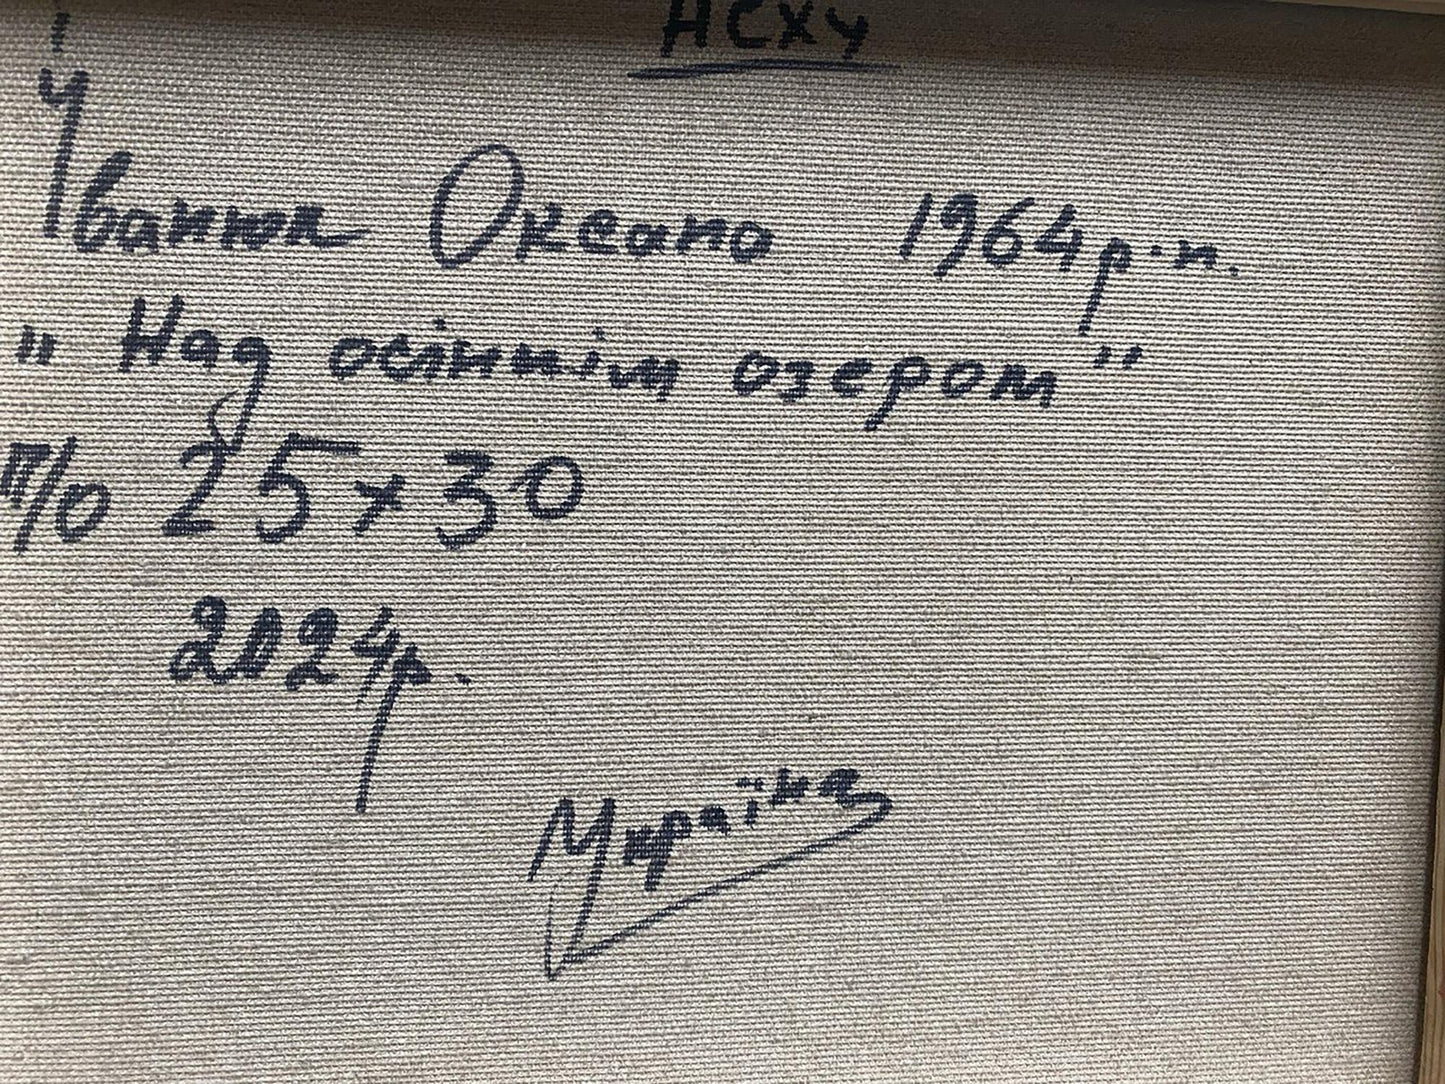 НСХУ
Іванюк Оксана 1964 р.н.
„Над осіннім озером”
п/о 25х30
2024р.
Україна